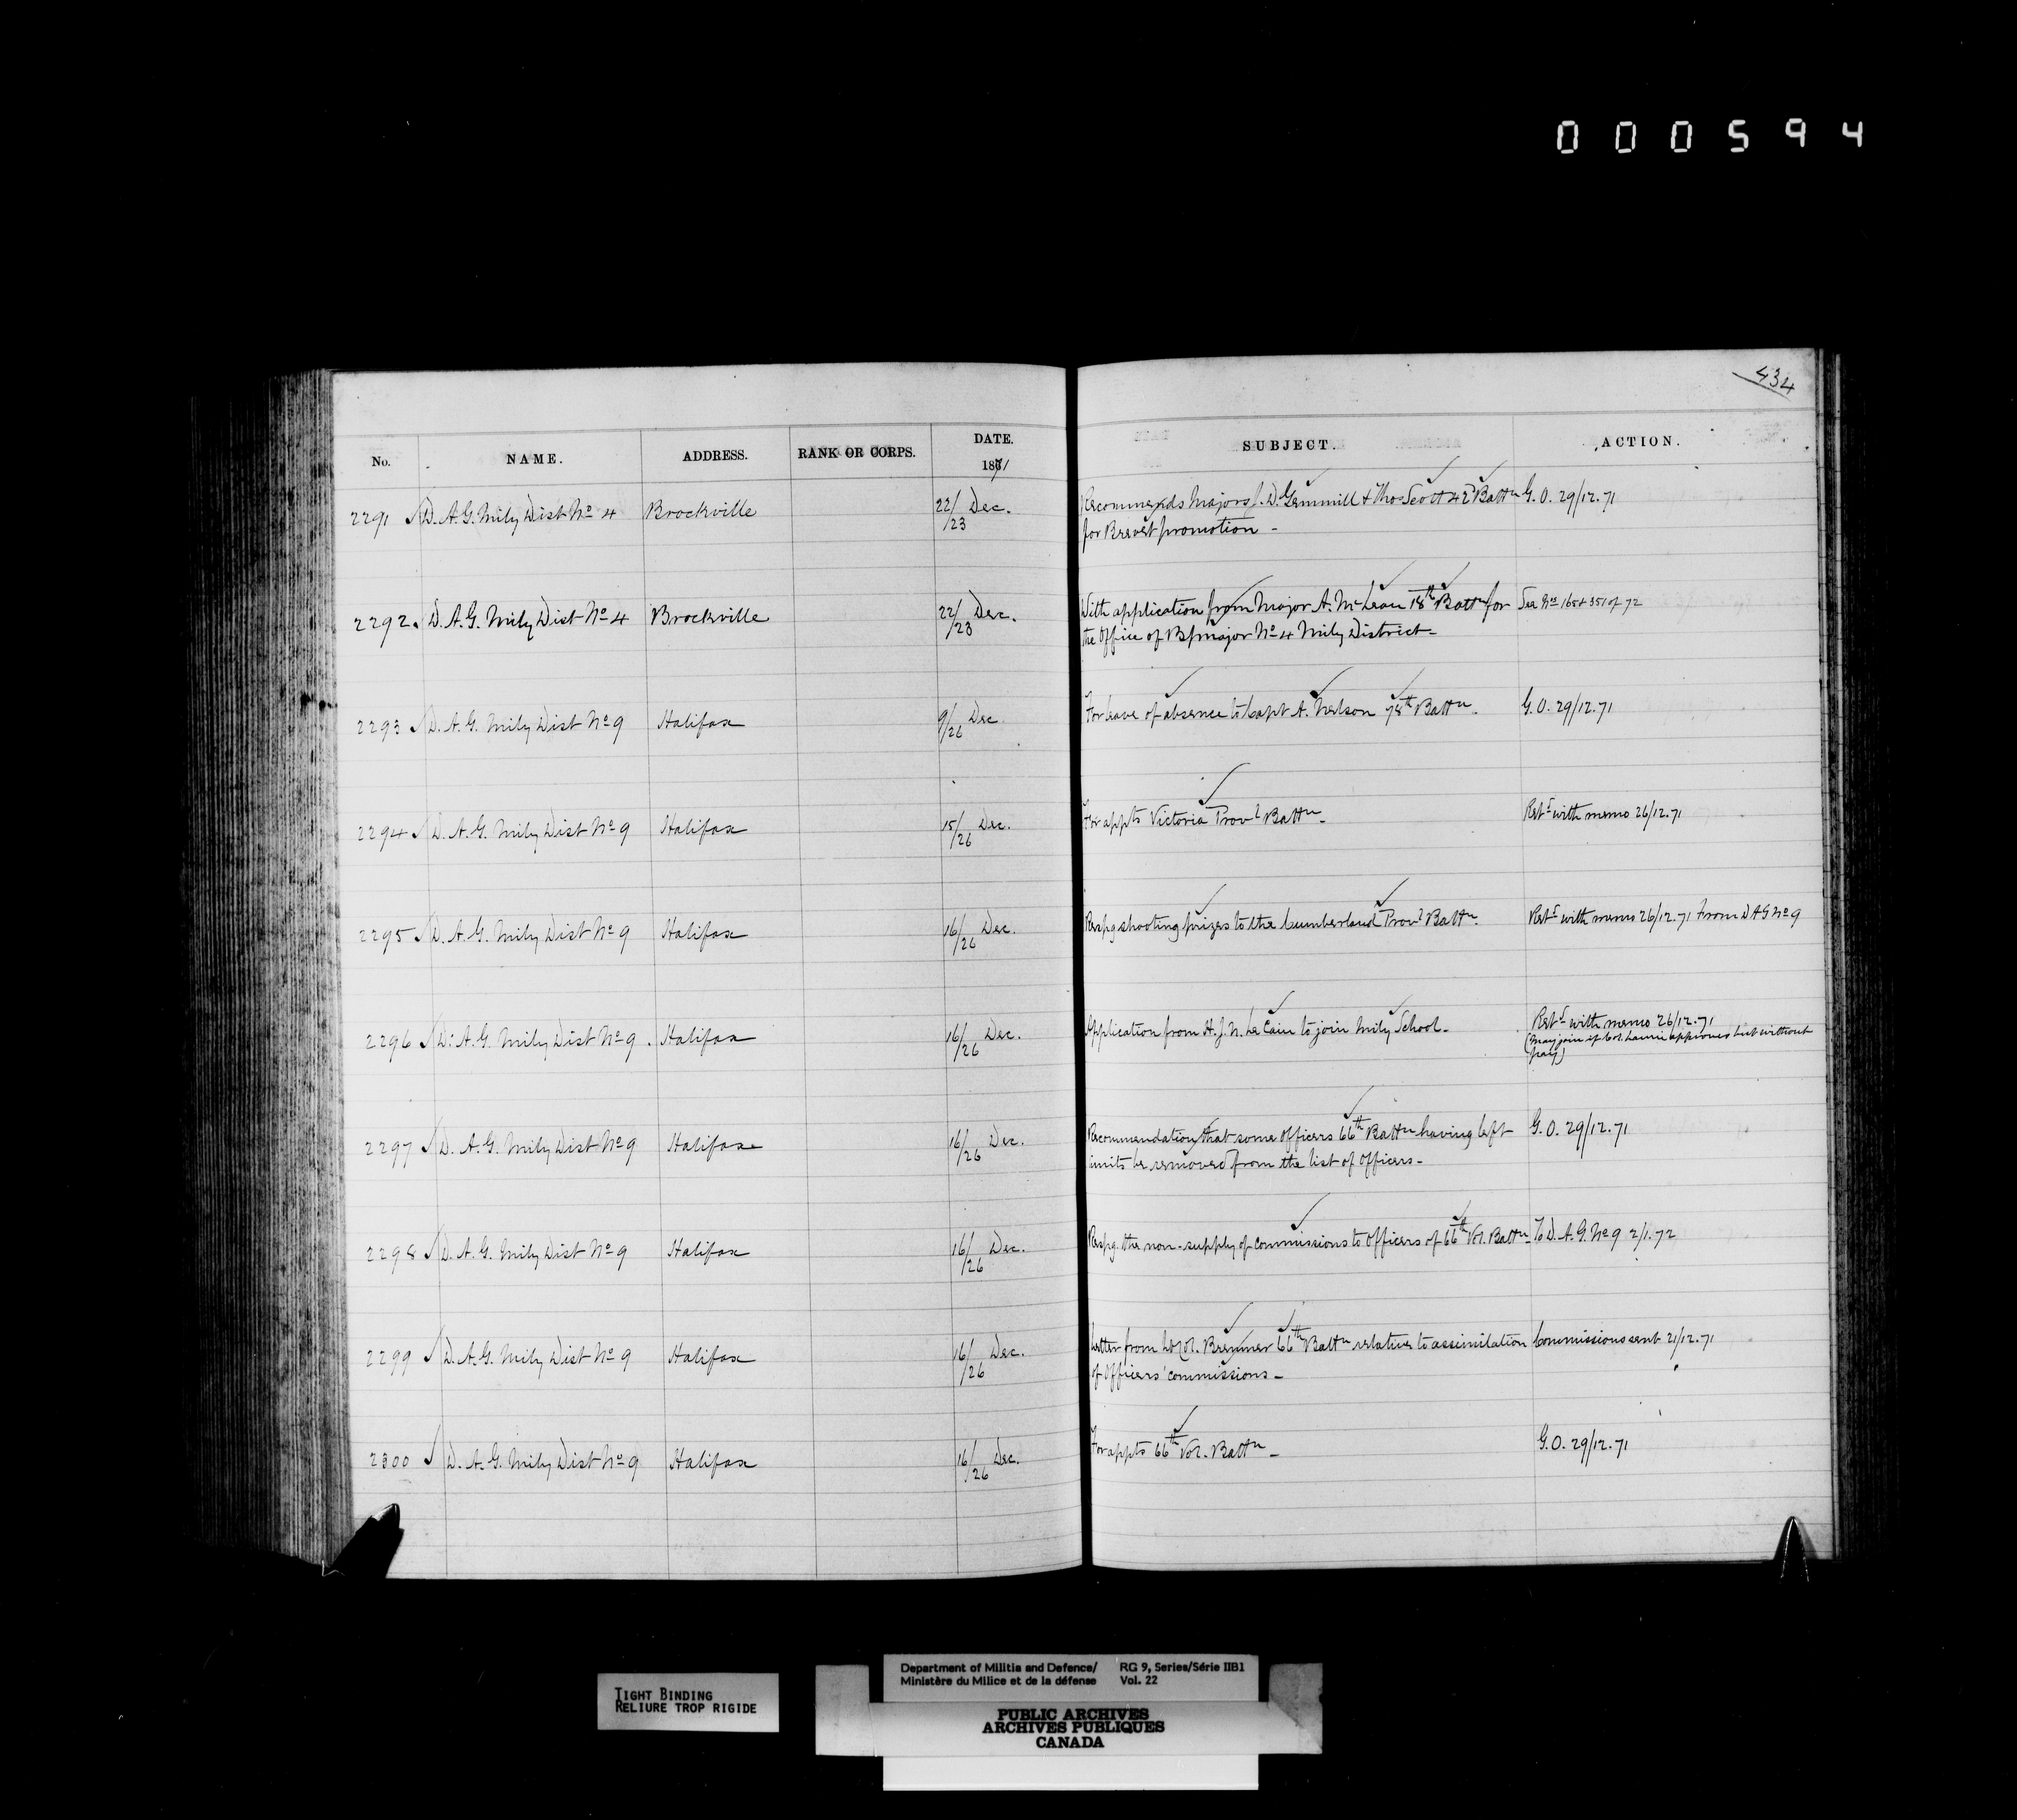 000594
434
No. NAME. ADDRESS. RANK OR CORPS. DATE. 1871 SUBJECT. ACTION.
2291 D. A. G. Mily Dist No 4 Brockville 22/23 Dec. Recommends Majors J. D. Gemmill & Thos Scott 42d Battn G. O. 29/12.71
for Brevet promotion -
2292. D. A. G. Mily Dist No 4 Brockville 22/23 Dec. With application from Major A. McLean 18th Battn for See Nos 165 & 351 of 72
the Office of Bg Major No 4 Mily District -
2293 D. A. G. Mily Dist No 9 Halifax 9/26 Dec For leave of absence to Capt A. Nelson 78th Battn. G. O. 29/12.71
2294 D. A. G. Mily Dist No 9 Halifax 15/26 Dec. For appts Victoria Provl Battn - Retd with memo 26/12.71
2295 D. A. G. Mily Dist No 9 Halifax 16/26 Dec. Respg shooting prizes to the Cumberland Provl Battn. Retd with memo 26/12.71 From D A G No 9
2296 D. A. G. Mily Dist No 9. Halifax 16/26 Dec. Application from H. J. N. Le Cain to join Mily School - Retd with memo 26/12.71
(May join if Col. Laurie approves but without
pay)
2297 D. A. G. Mily Dist No 9 Halifax 16/26 Dec. Recommendation that some Officers 66th Battn having left G. O. 29/12.71
limits be removed from the list of Officers -
2298 D. A. G. Mily Dist No 9 Halifax 16/26 Dec. Respg. the non-supply of Commissions to Officers of 66th Vol. Battn - To D. A. G. No 9 2/1.72
2299 D. A. G. Mily Dist No 9 Halifax 16/26 Dec. Letter from Lt Col. Bremner 66th Battn relative to assimilation Commissions sent 21/12.71
of Officers' commissions -
2300 D. A. G. Mily Dist No 9 Halifax 16/26 Dec. For appts 66th Vol. Battn - G. O. 29/12.71
TIGHT BINDING
RELIURE TROP RIGIDE
Department of Militia and Defence/ RG 9, Series/Série IIB1
Ministère du Milice et de la défense Vol. 22
PUBLIC ARCHIVES
ARCHIVES PUBLIQUES
CANADA